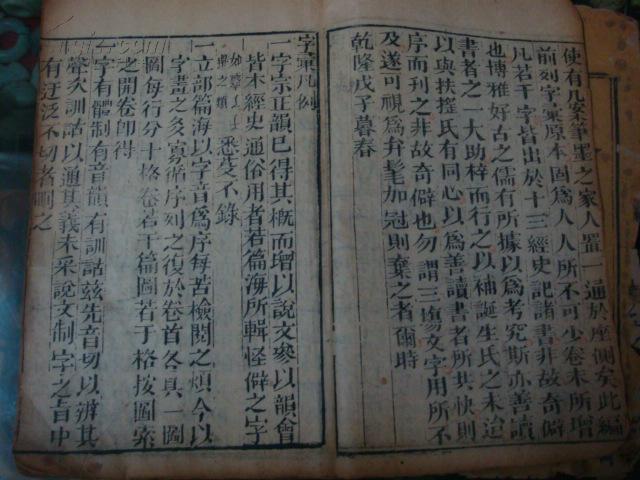 使有几案筆墨之家人置一通於座側矣此編
前列字彙原本固爲人人所不可少卷末所增
凡若干字皆出於十三經史記諸書非故奇僻
也博雅好古之儒有所據以爲考究斯亦善讀
書者之一大助梓而行之以補誕生氏之未逮
以與扶搖氏有同心以爲善讀書者所共快則
序而刊之非故奇僻也勿謂三場文字用所不
及遂可視爲弁髦加冠則棄之者爾時
乾隆戊子暮春
字彙凡例
一字宗正韻已得其概而增以說文參以韻會
皆本經史通俗用者若篇海所輯怪僻之字
悉芟不錄
一立部篇海以字音爲序每苦檢閱之煩今以
字畫之多寡循序列之復於卷首各具一圖
圖每行分十格卷若干篇圖若干格按圖索
之開卷即得
一字有體制有音韻有訓詁茲先音切以辨其
聲次訓詁以通其義末采說文制字之旨中
有迂泛不切者刪之